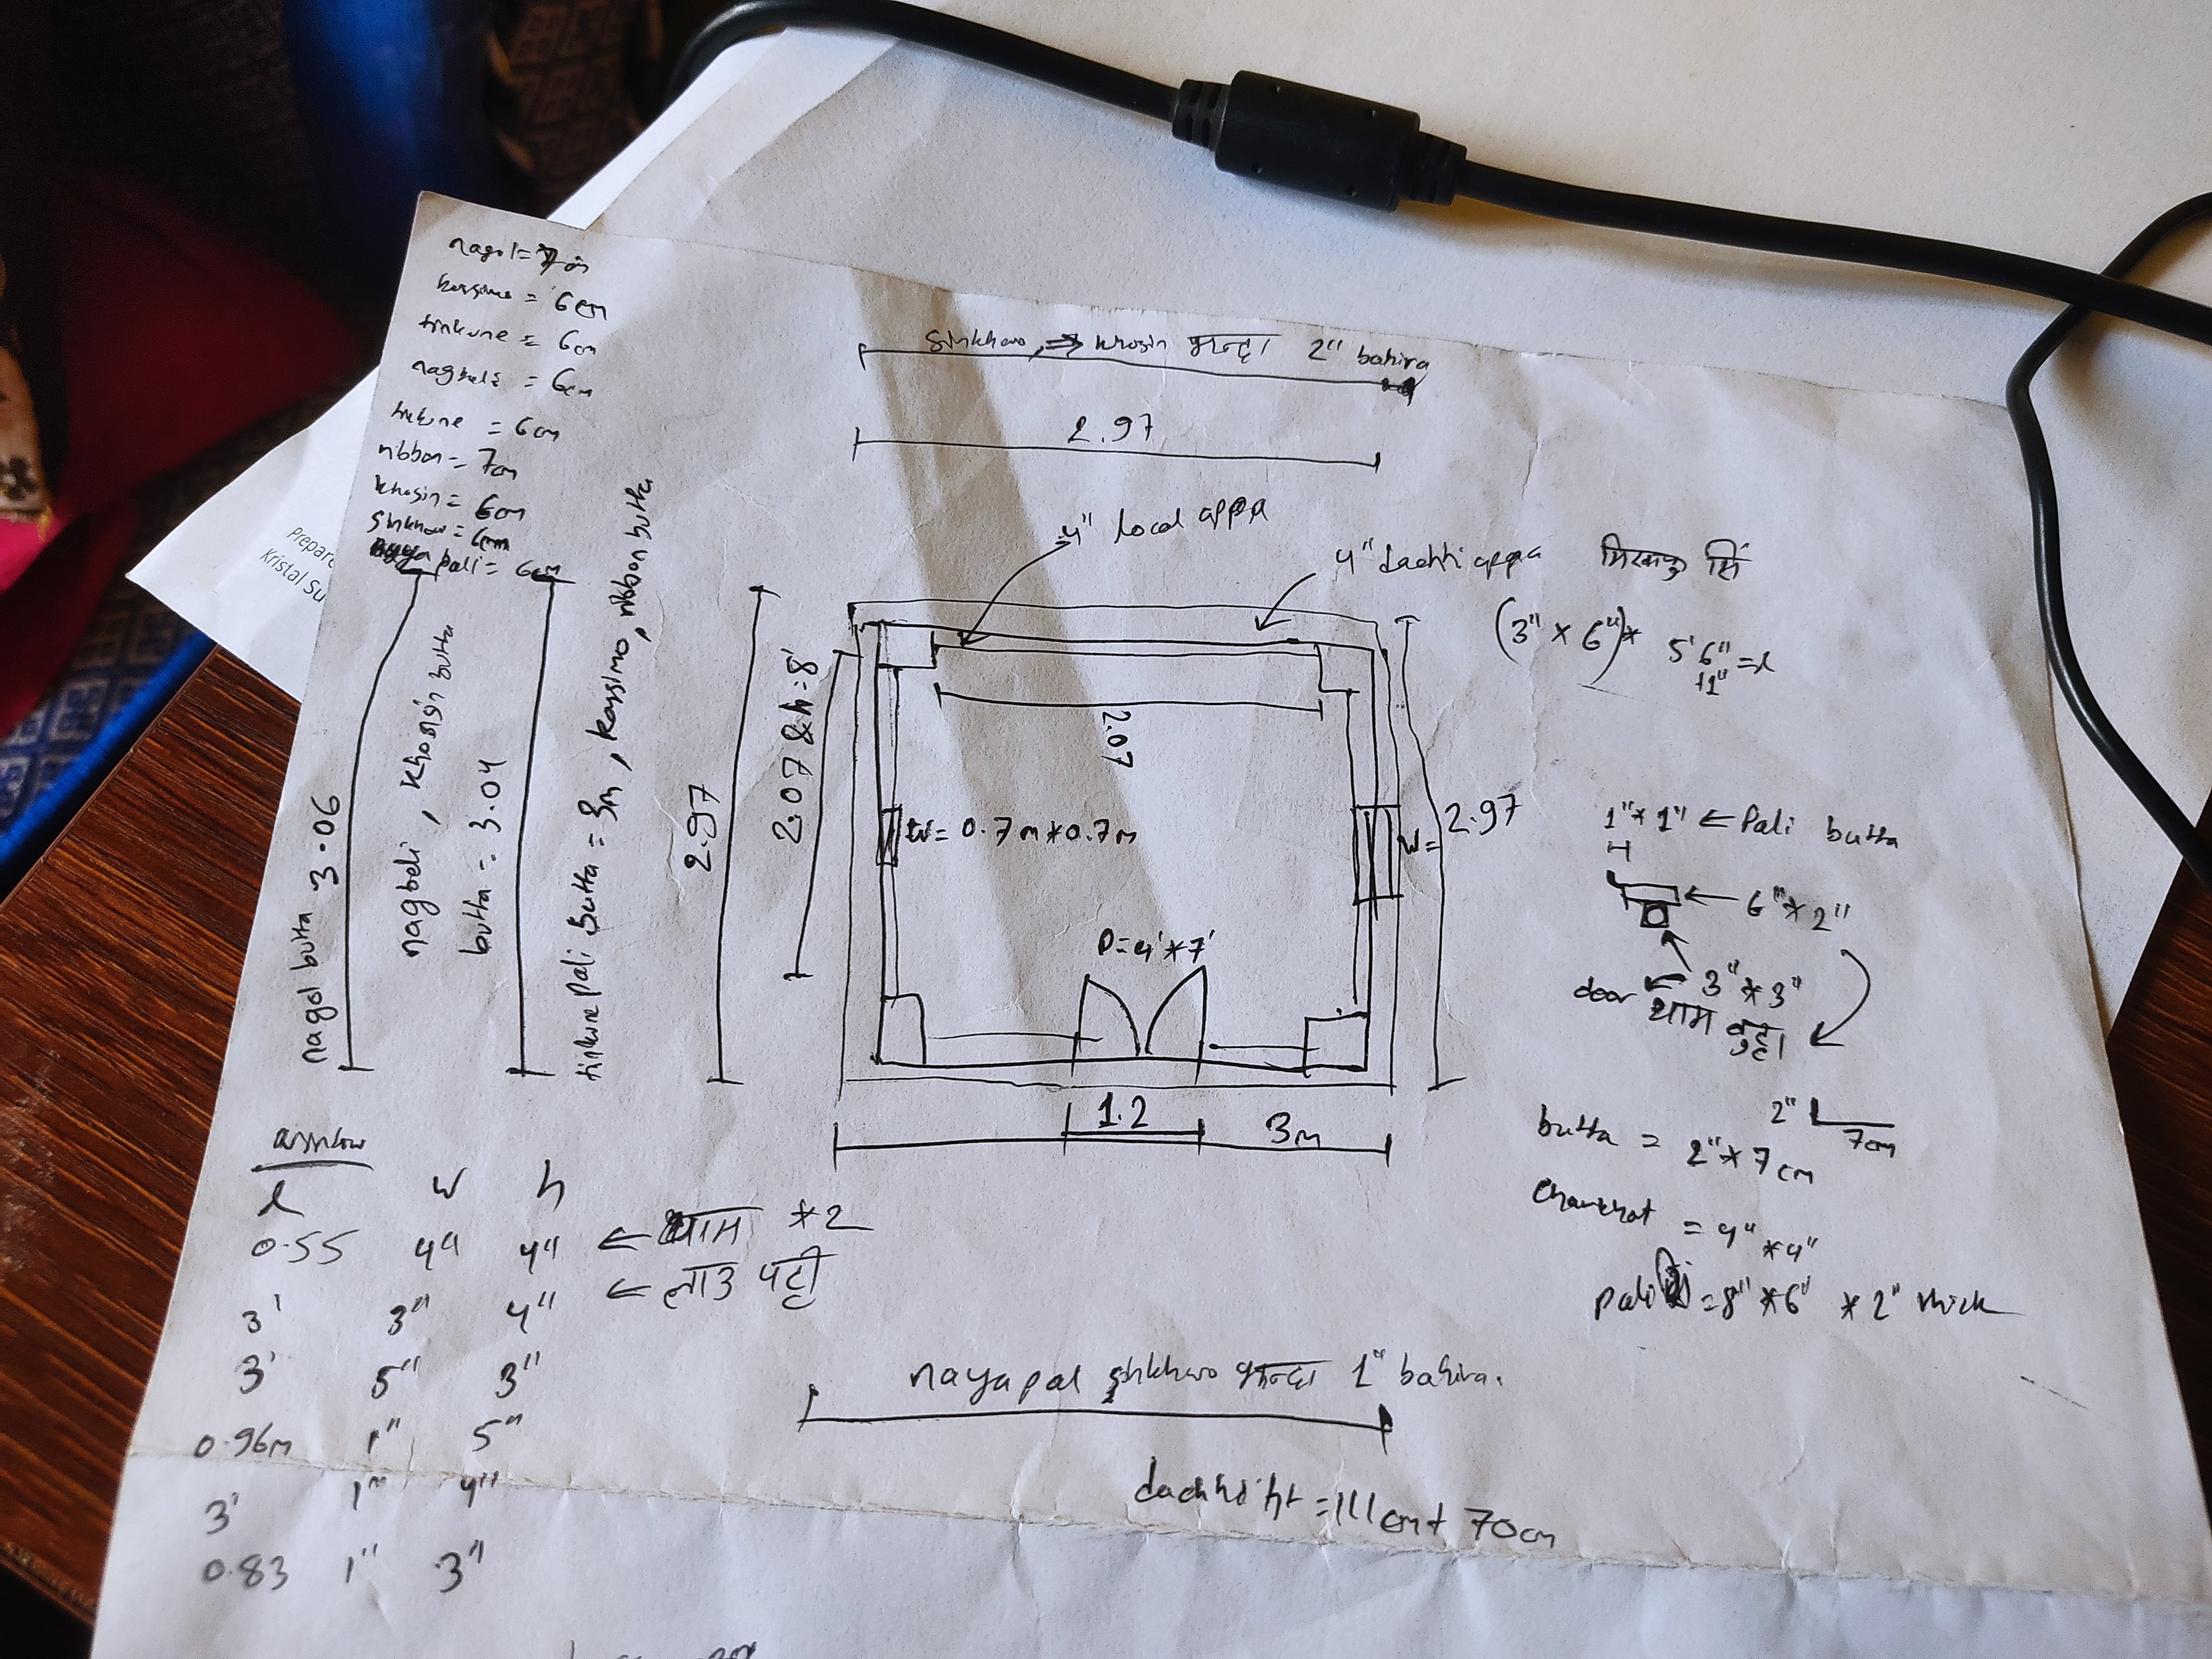 nagol = 7cm
kassimo = 6cm
tinkune = 6cm
nagbeli = 6cm
tinkune = 6cm
ribbon = 7cm
khosin = 6cm
sinkhwo = 6cm
naya pali = 6cm
Prepare
Kristal Su
sinkhwo, ⇒ khosin भन्दा 2" bahira
2.97
4" local appa
4" dachhi appa
(3" × 6")* 5'6" = l
+1"
nagol butta 3.06
nagbeli, khosin butta
butta = 3.04
tinkune pali butta = 3m, kassimo, ribbon butta
2.97
2.07 & h=8'
2.07
W = 0.7m*0.7m
W =
2.97
D = 4'*7'
1.2
3m
1"*1" ← Pali butta
← 6"*2"
door ← 3"*3"
थाम बुट्टा
2"
7cm
butta = 2"*7cm
chaukhat = 4"*4"
pali = 8"*6" *2" thick
l w h
0.55 4" 4" ← थाम *2
3' 3" 4" ← लाउ पट्टी
3' 5" 3"
0.96m 1" 5"
3' 1" 4"
0.83 1" 3"
nayapal sinkhwo भन्दा 1" bahira.
dachhi ht = 111cm + 70cm